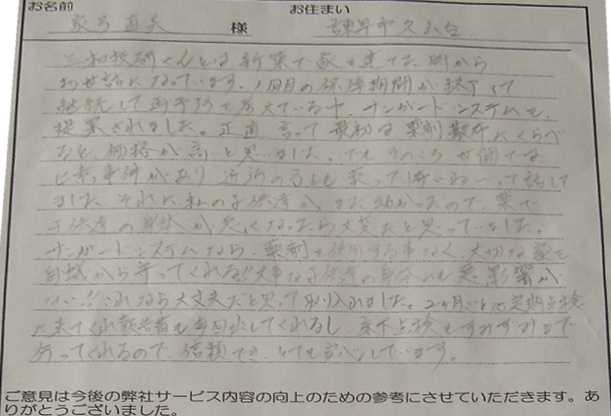 お名前 様 お住まい
三和技研さんとは新築で家を建てた時から
お世話になっています。1回目の保障期間が終了して
継続して予防を考えている サンガードシステムを
提案されました。正直言って最初は薬剤散布にくらべ
ると価格が高いと思いました。でもそのころ世間では
ヒ素事件があり近所の 薬って怖いねーって話して
ました。それに私の子供達がまだ幼かったので、薬で
子供達の身体が悪くなったら大変だと思っていました。
サンガードシステムなら、薬剤を使用する事なく、大切な家を
白蟻から守ってくれる!!大事な子供達の身体にも悪影響が
ない!!これなら大丈夫だと思って取り入れました。2ヶ月ごとに定期点検
に来てくれ報告書も毎回出してくれるし、床下点検もすみずみまで
行ってくれるので、信頼でき、とても安心しています。
ご意見は今後の弊社サービス内容の向上のための参考にさせていただきます。あ
りがとうございました。